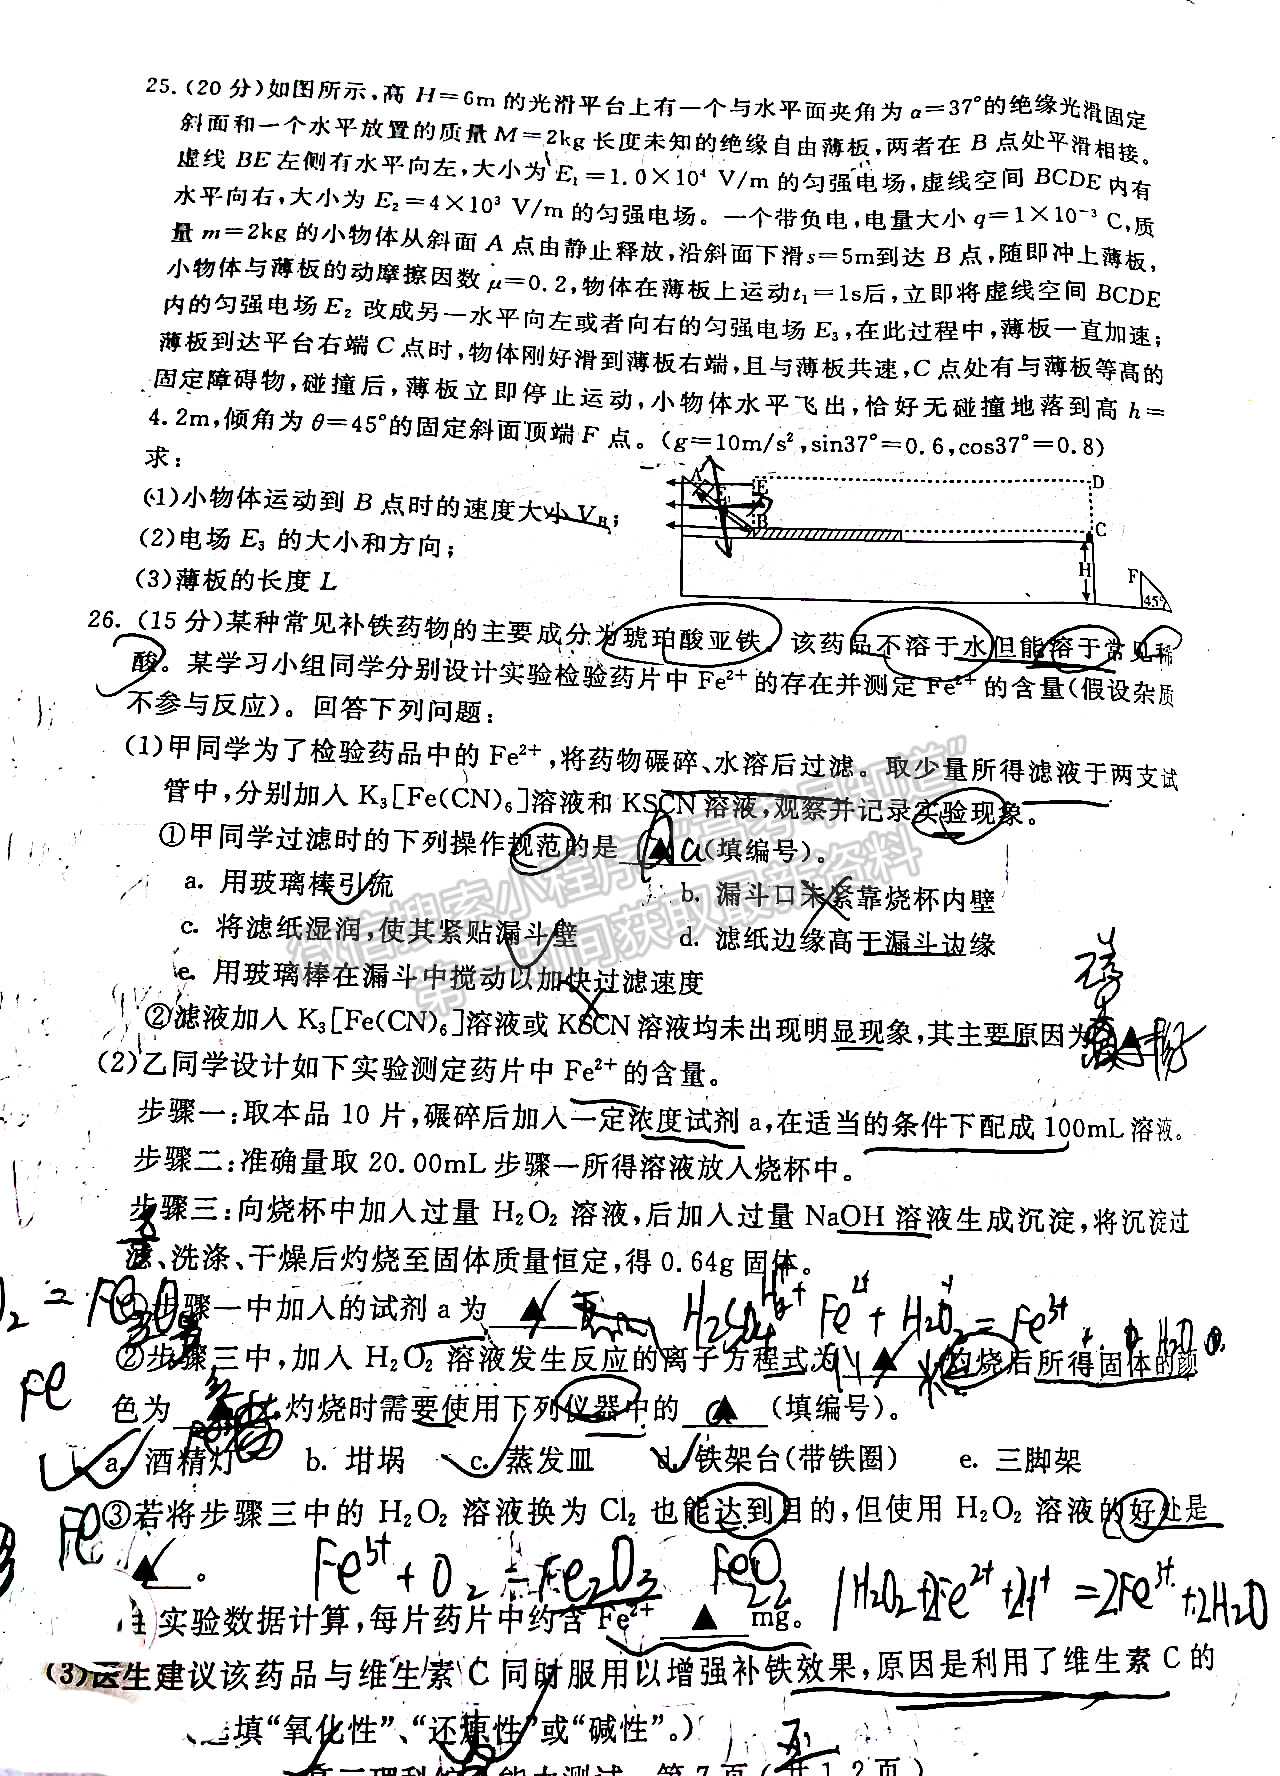 25.(20 分)如图所示,高 H=6m 的光滑平台上有一个与水平面夹角为 α=37°的绝缘光滑固定
斜面和一个水平放置的质量 M=2kg 长度未知的绝缘自由薄板,两者在 B 点处平滑相接。
虚线 BE 左侧有水平向左,大小为 E₁=1.0×10⁴ V/m 的匀强电场,虚线空间 BCDE 内有
水平向右,大小为 E₂=4×10³ V/m 的匀强电场。一个带负电,电量大小 q=1×10⁻³ C,质
量 m=2kg 的小物体从斜面 A 点由静止释放,沿斜面下滑s=5m到达 B 点,随即冲上薄板,
小物体与薄板的动摩擦因数 μ=0.2,物体在薄板上运动t₁=1s后,立即将虚线空间 BCDE
内的匀强电场 E₂ 改成另一水平向左或者向右的匀强电场 E₃,在此过程中,薄板一直加速;
薄板到达平台右端 C 点时,物体刚好滑到薄板右端,且与薄板共速,C 点处有与薄板等高的
固定障碍物,碰撞后,薄板立即停止运动,小物体水平飞出,恰好无碰撞地落到高 h=
4.2m,倾角为 θ=45°的固定斜面顶端 F 点。(g=10m/s²,sin37°=0.6,cos37°=0.8)
求:
(1)小物体运动到 B 点时的速度大小 V_B;
(2)电场 E₃ 的大小和方向;
(3)薄板的长度 L
A E D
B C
H F 45°
26.(15 分)某种常见补铁药物的主要成分为琥珀酸亚铁。该药品不溶于水但能溶于常见稀
酸。某学习小组同学分别设计实验检验药片中 Fe²⁺ 的存在并测定 Fe²⁺ 的含量(假设杂质
不参与反应)。回答下列问题:
(1)甲同学为了检验药品中的 Fe²⁺,将药物碾碎、水溶后过滤。取少量所得滤液于两支试
管中,分别加入 K₃[Fe(CN)₆]溶液和 KSCN 溶液,观察并记录实验现象。
①甲同学过滤时的下列操作规范的是 ▲ a (填编号)。
a. 用玻璃棒引流 b. 漏斗口未紧靠烧杯内壁
c. 将滤纸湿润,使其紧贴漏斗壁 d. 滤纸边缘高于漏斗边缘
e. 用玻璃棒在漏斗中搅动以加快过滤速度
②滤液加入 K₃[Fe(CN)₆]溶液或 KSCN 溶液均未出现明显现象,其主要原因为 ▲
(2)乙同学设计如下实验测定药片中 Fe²⁺ 的含量。
步骤一:取本品 10 片,碾碎后加入一定浓度试剂 a,在适当的条件下配成 100mL 溶液。
步骤二:准确量取 20.00mL 步骤一所得溶液放入烧杯中。
步骤三:向烧杯中加入过量 H₂O₂ 溶液,后加入过量 NaOH 溶液生成沉淀,将沉淀过
滤、洗涤、干燥后灼烧至固体质量恒定,得 0.64g 固体。
①步骤一中加入的试剂 a 为 ▲ H₂SO₄ Fe²⁺+H₂O₂=Fe³⁺
②步骤三中,加入 H₂O₂ 溶液发生反应的离子方程式为 ▲ 灼烧后所得固体的颜
色为 ▲ ;灼烧时需要使用下列仪器中的 ▲ (填编号)。
a. 酒精灯 b. 坩埚 c. 蒸发皿 d. 铁架台(带铁圈) e. 三脚架
③若将步骤三中的 H₂O₂ 溶液换为 Cl₂ 也能达到目的,但使用 H₂O₂ 溶液的好处是
▲ 。
Fe³⁺+O₂=Fe₂O₃ H₂O₂+2Fe²⁺+2H⁺=2Fe³⁺+2H₂O
实验数据计算,每片药片中约含 Fe²⁺ ▲ mg。
(3)医生建议该药品与维生素 C 同时服用以增强补铁效果,原因是利用了维生素 C 的
填“氧化性”、“还原性”或“碱性”。)
第 7 页(共 12 页)
微信搜索小程序“高考早知道”
第一时间获取最新资料